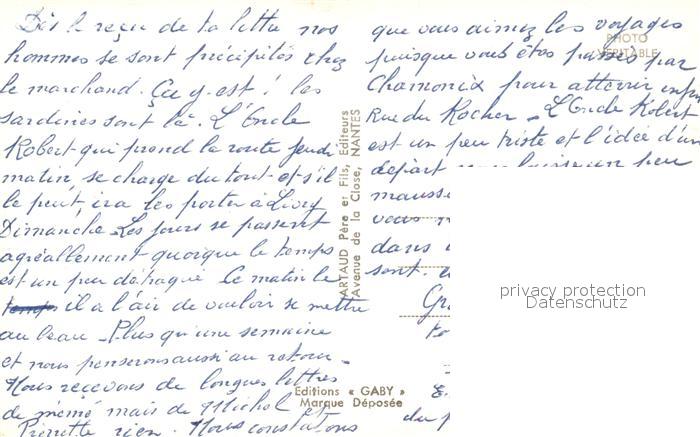 Dès le reçu de ta lettre nos
hommes se sont précipités chez
le marchand. Ça y est ! les
sardines sont là. L'Oncle
Robert qui prend la route jeudi
matin se charge du tout et s'il
le peut, ira les porter à Livry
Dimanche. Les jours se passent
agréablement quoique le temps
est un peu détraqué. Ce matin le
temps il a l'air de vouloir se mettre
au beau. Plus qu'une semaine
et nous penserons aussi au retour.
Nous recevons de longues lettres
de mémé mais de Michel et
Pierrette rien. Nous constatons
que vous aimez les voyages
puisque vous êtes passés par
Chamonix pour atterrir enfin
Rue du Rocher. L'Oncle Robert
est un peu triste et l'idée d'un
départ un peu
mauss
vous
dans
sont
Gr
du
PHOTO
VÉRITABLE
ARTAUD Père et Fils, Editeurs
Avenue de la Close, NANTES
Editions « GABY »
Marque Déposée
privacy protection
Datenschutz